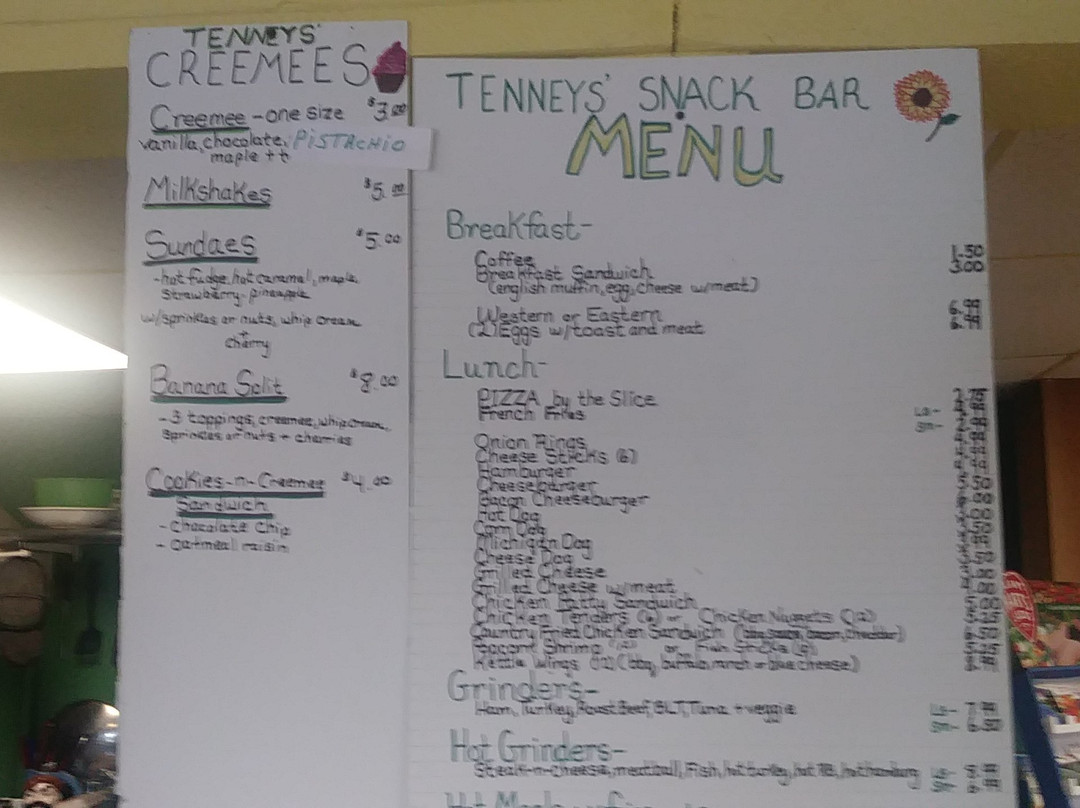 TENNEYS'
CREEMEES
Creemee - one size $3.00
vanilla, chocolate, PISTACHIO
maple
Milkshakes $5.00
Sundaes $5.00
- hot fudge, hot caramel, maple,
Strawberry, pineapple
w/sprinkles or nuts, whip cream
+
cherry
Banana Split $8.00
- 3 toppings, creemee, whip cream,
Sprinkles or nuts + cherries
Cookies-n-Creemee $4.00
Sandwich
- Chocolate Chip
- Oatmeal raisin
TENNEYS' SNACK BAR
MENU
Breakfast-
Coffee 1.50
Breakfast Sandwich 3.00
(english muffin, egg, cheese w/meat)
Western or Eastern 6.99
(2) Eggs w/toast and meat 6.99
Lunch-
PIZZA by the Slice 2.75
French Fries Lg- 4.99
Sm- 2.99
Onion Rings 4.99
Cheese Sticks (6)
Hamburger
Cheeseburger 5.50
Bacon Cheeseburger
Hot Dog
Corn Dog
Michigan Dog
Cheese Dog
Grilled Cheese
Grilled Cheese w/meat
Chicken Patty Sandwich 5.00
Chicken Tenders (6) or Chicken Nuggets (12) 5.25
Country Fried Chicken Sandwich (bbq sauce, bacon, cheddar) 6.50
Popcorn Shrimp or Fish Sticks 5.25
Kettle Wings (12) (bbq, buffalo, ranch or blue cheese) 8.99
Grinders-
Ham, Turkey, Roast Beef, BLT, Tuna + veggie Lg- 7.99
Sm- 6.50
Hot Grinders-
Steak-n-cheese, meatball, Fish, hot turkey, hot RB, hot hamburg Lg- 8.99
Sm- 6.99